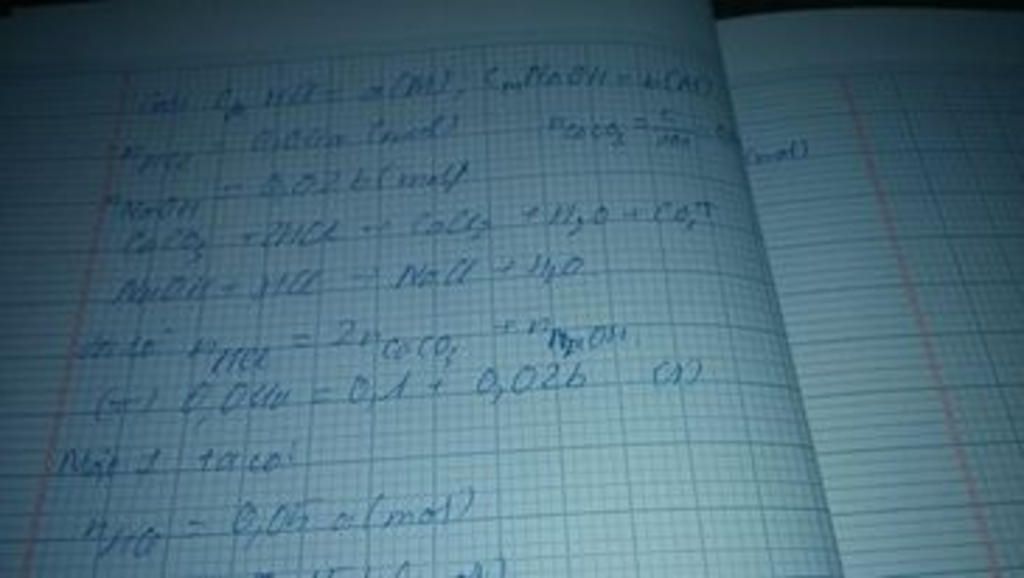 C_M HCl = a(M); C_M NaOH = b(M)
n_HCl = 0,04a (mol) n_CaCO3 =
n_NaOH = 0,02b (mol)
CaCO3 + 2HCl → CaCl2 + H2O + CO2↑
NaOH + HCl → NaCl + H2O
n_HCl = 2n_CaCO3 + n_NaOH
0,04a = 0,1 + 0,02b (1)
1 ta có:
n_HCl = 0,05a (mol)